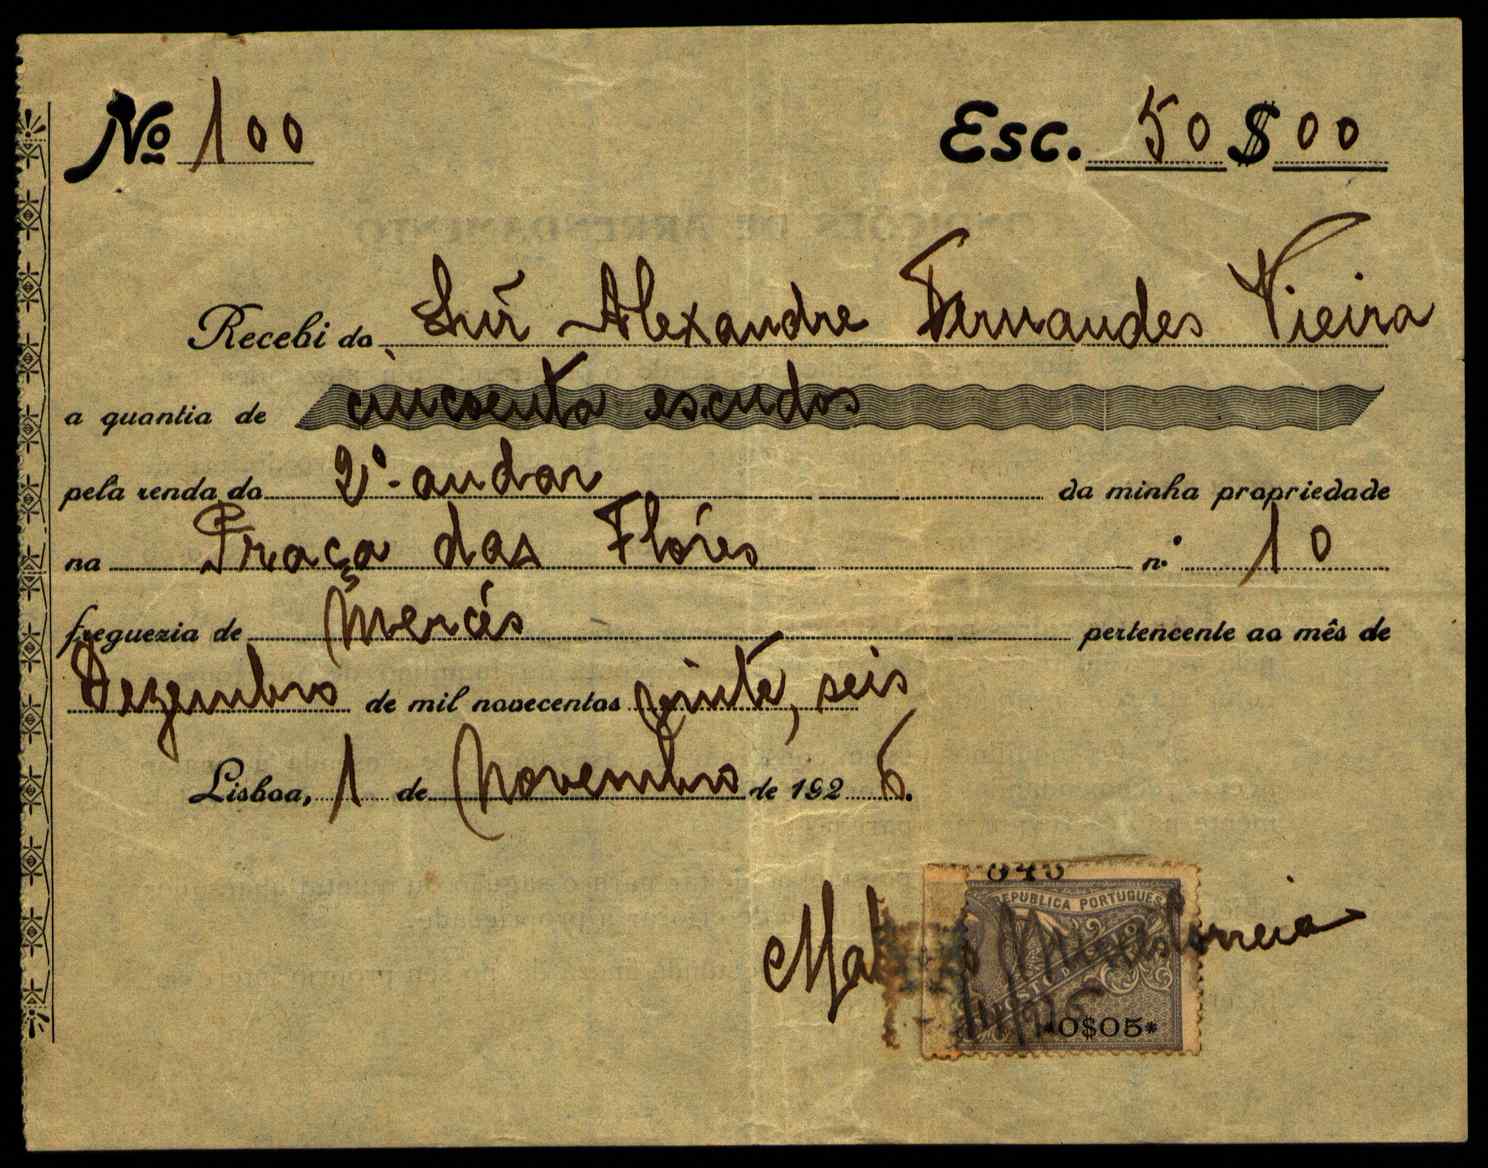 Nº 100 Esc. 50$00
Recebi do Luiz Alexandre Fernandes Vieira
a quantia de cincoenta escudos
pela renda do 2º andar da minha propriedade
na Praça das Flóres n.º 10
freguezia de Mercês pertencente ao mês de
Dezembro de mil novecentos vinte, seis
Lisboa, 1 de Novembro de 1926.
REPUBLICA PORTUGUESA
*0$05*